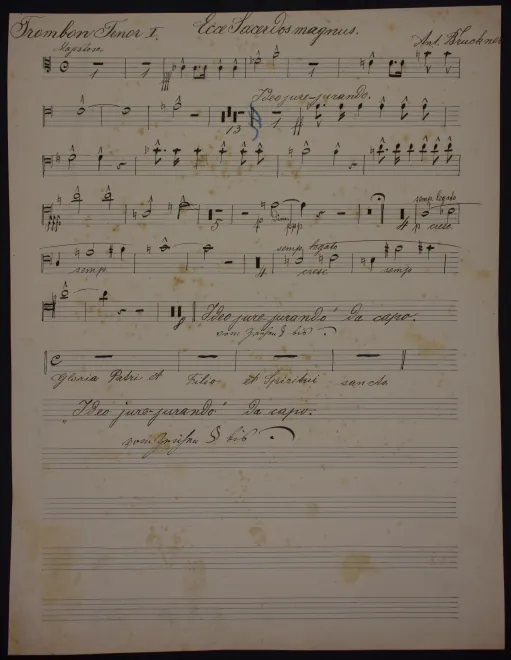 Trombon Tenor I. Ecce Sacerdos magnus.
Ant. Bruckner
Majestoso.
1 1 fff 1
Ideo jure-jurando.
13 1 ff
fff 5 p dim ppp 4 semp. legato p cresc
semp 4 semp. legato cresc semp
9 "Ideo jure-jurando" da capo.
vom Zeichen § bis
C
Gloria Patri et Filio et Spiritui sancto
"Ideo jure-jurando" da capo.
vom Zeichen § bis